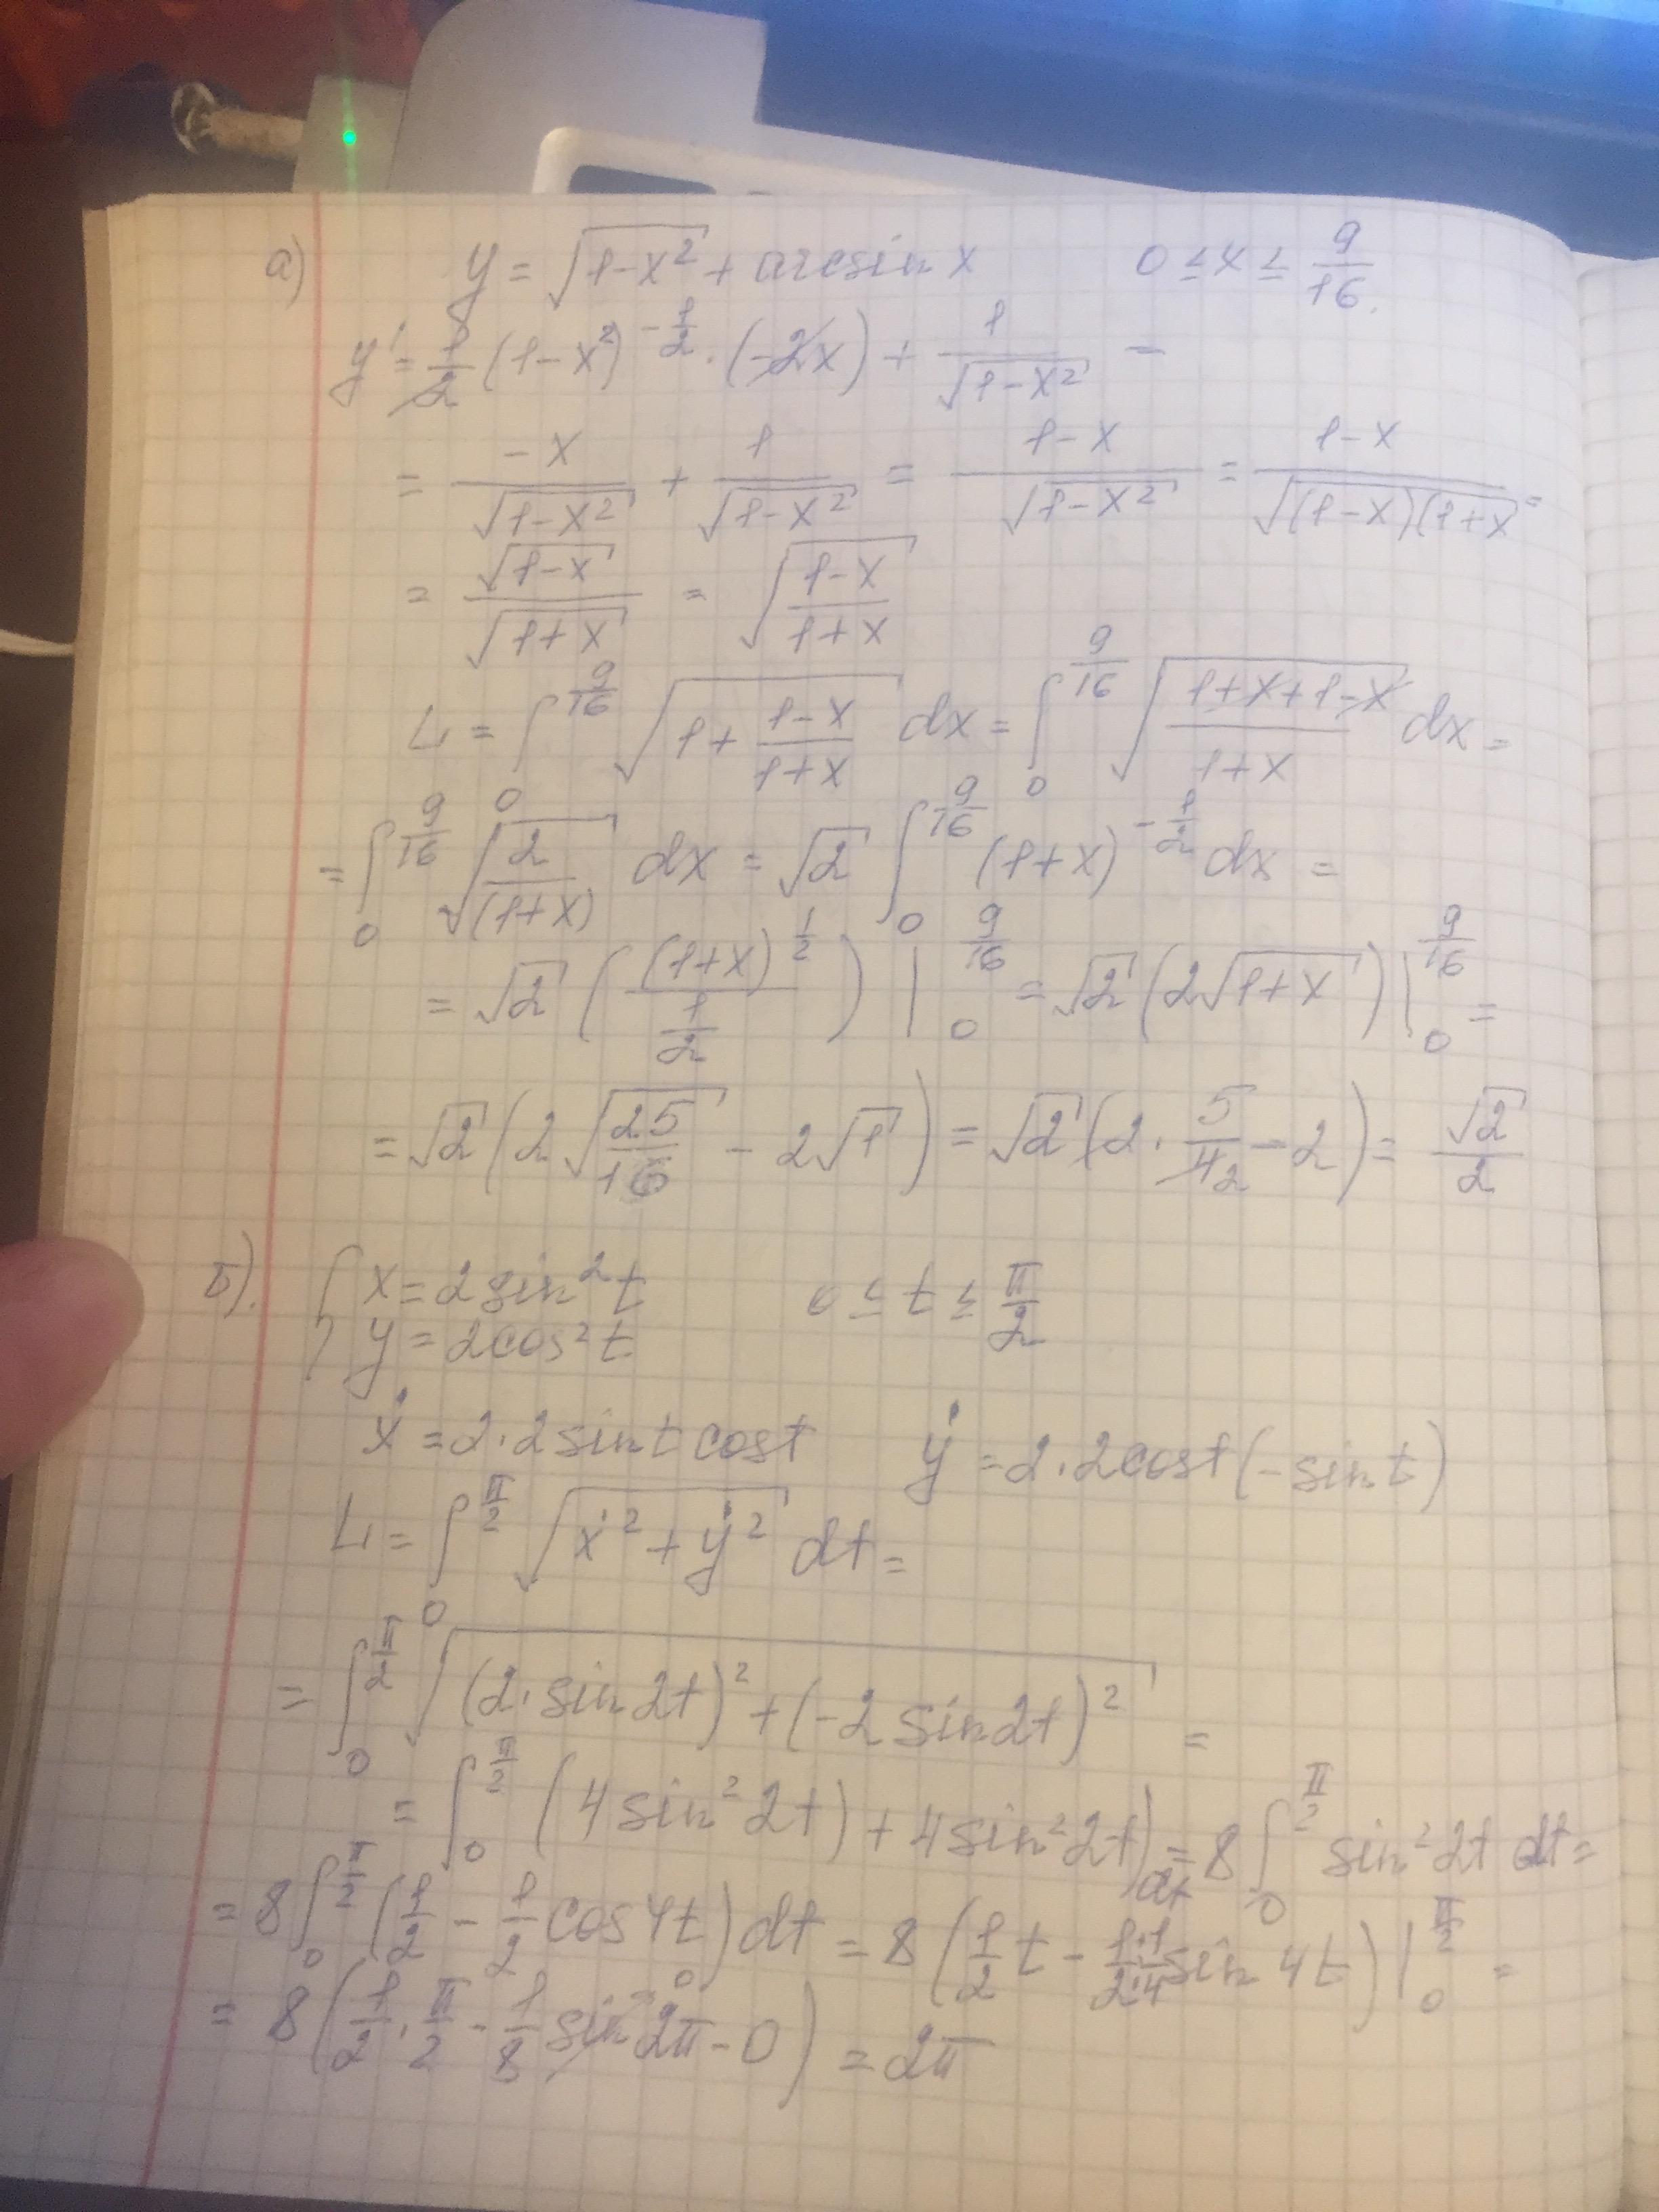 а) y = √(1-x²) + arcsin x 0 ≤ x ≤ 9/16.
y' = 1/2 (1-x²)^(-1/2) · (-2x) + 1/√(1-x²) =
= -x/√(1-x²) + 1/√(1-x²) = (1-x)/√(1-x²) = (1-x)/√((1-x)(1+x) =
= √(1-x)/√(1+x) = √((1-x)/(1+x))
L = ∫₀^(9/16) √(1 + (1-x)/(1+x)) dx = ∫₀^(9/16) √((1+x+1-x)/(1+x)) dx =
= ∫₀^(9/16) √(2/(1+x)) dx = √2 ∫₀^(9/16) (1+x)^(-1/2) dx =
= √2 ((1+x)^(1/2)/(1/2)) |₀^(9/16) = √2 (2√(1+x)) |₀^(9/16) =
= √2 (2√(25/16) - 2√1) = √2 (2 · 5/4₂ - 2) = √2/2
б). { x = 2 sin² t 0 ≤ t ≤ π/2
y = 2cos² t
ẋ = 2·2 sin t cos t ẏ = 2·2cos t (-sin t)
L = ∫₀^(π/2) √(ẋ² + ẏ²) dt =
= ∫₀^(π/2) √((2·sin 2t)² + (-2 sin 2t)²) =
= ∫₀^(π/2) (4 sin² 2t) + 4 sin² 2t) dt = 8 ∫₀^(π/2) sin² 2t dt =
= 8 ∫₀^(π/2) (1/2 - 1/2 cos 4t) dt = 8 (1/2 t - 1·1/2·4 sin 4t) |₀^(π/2) =
= 8 (1/2 · π/2 - 1/8 sin 2π - 0) = 2π